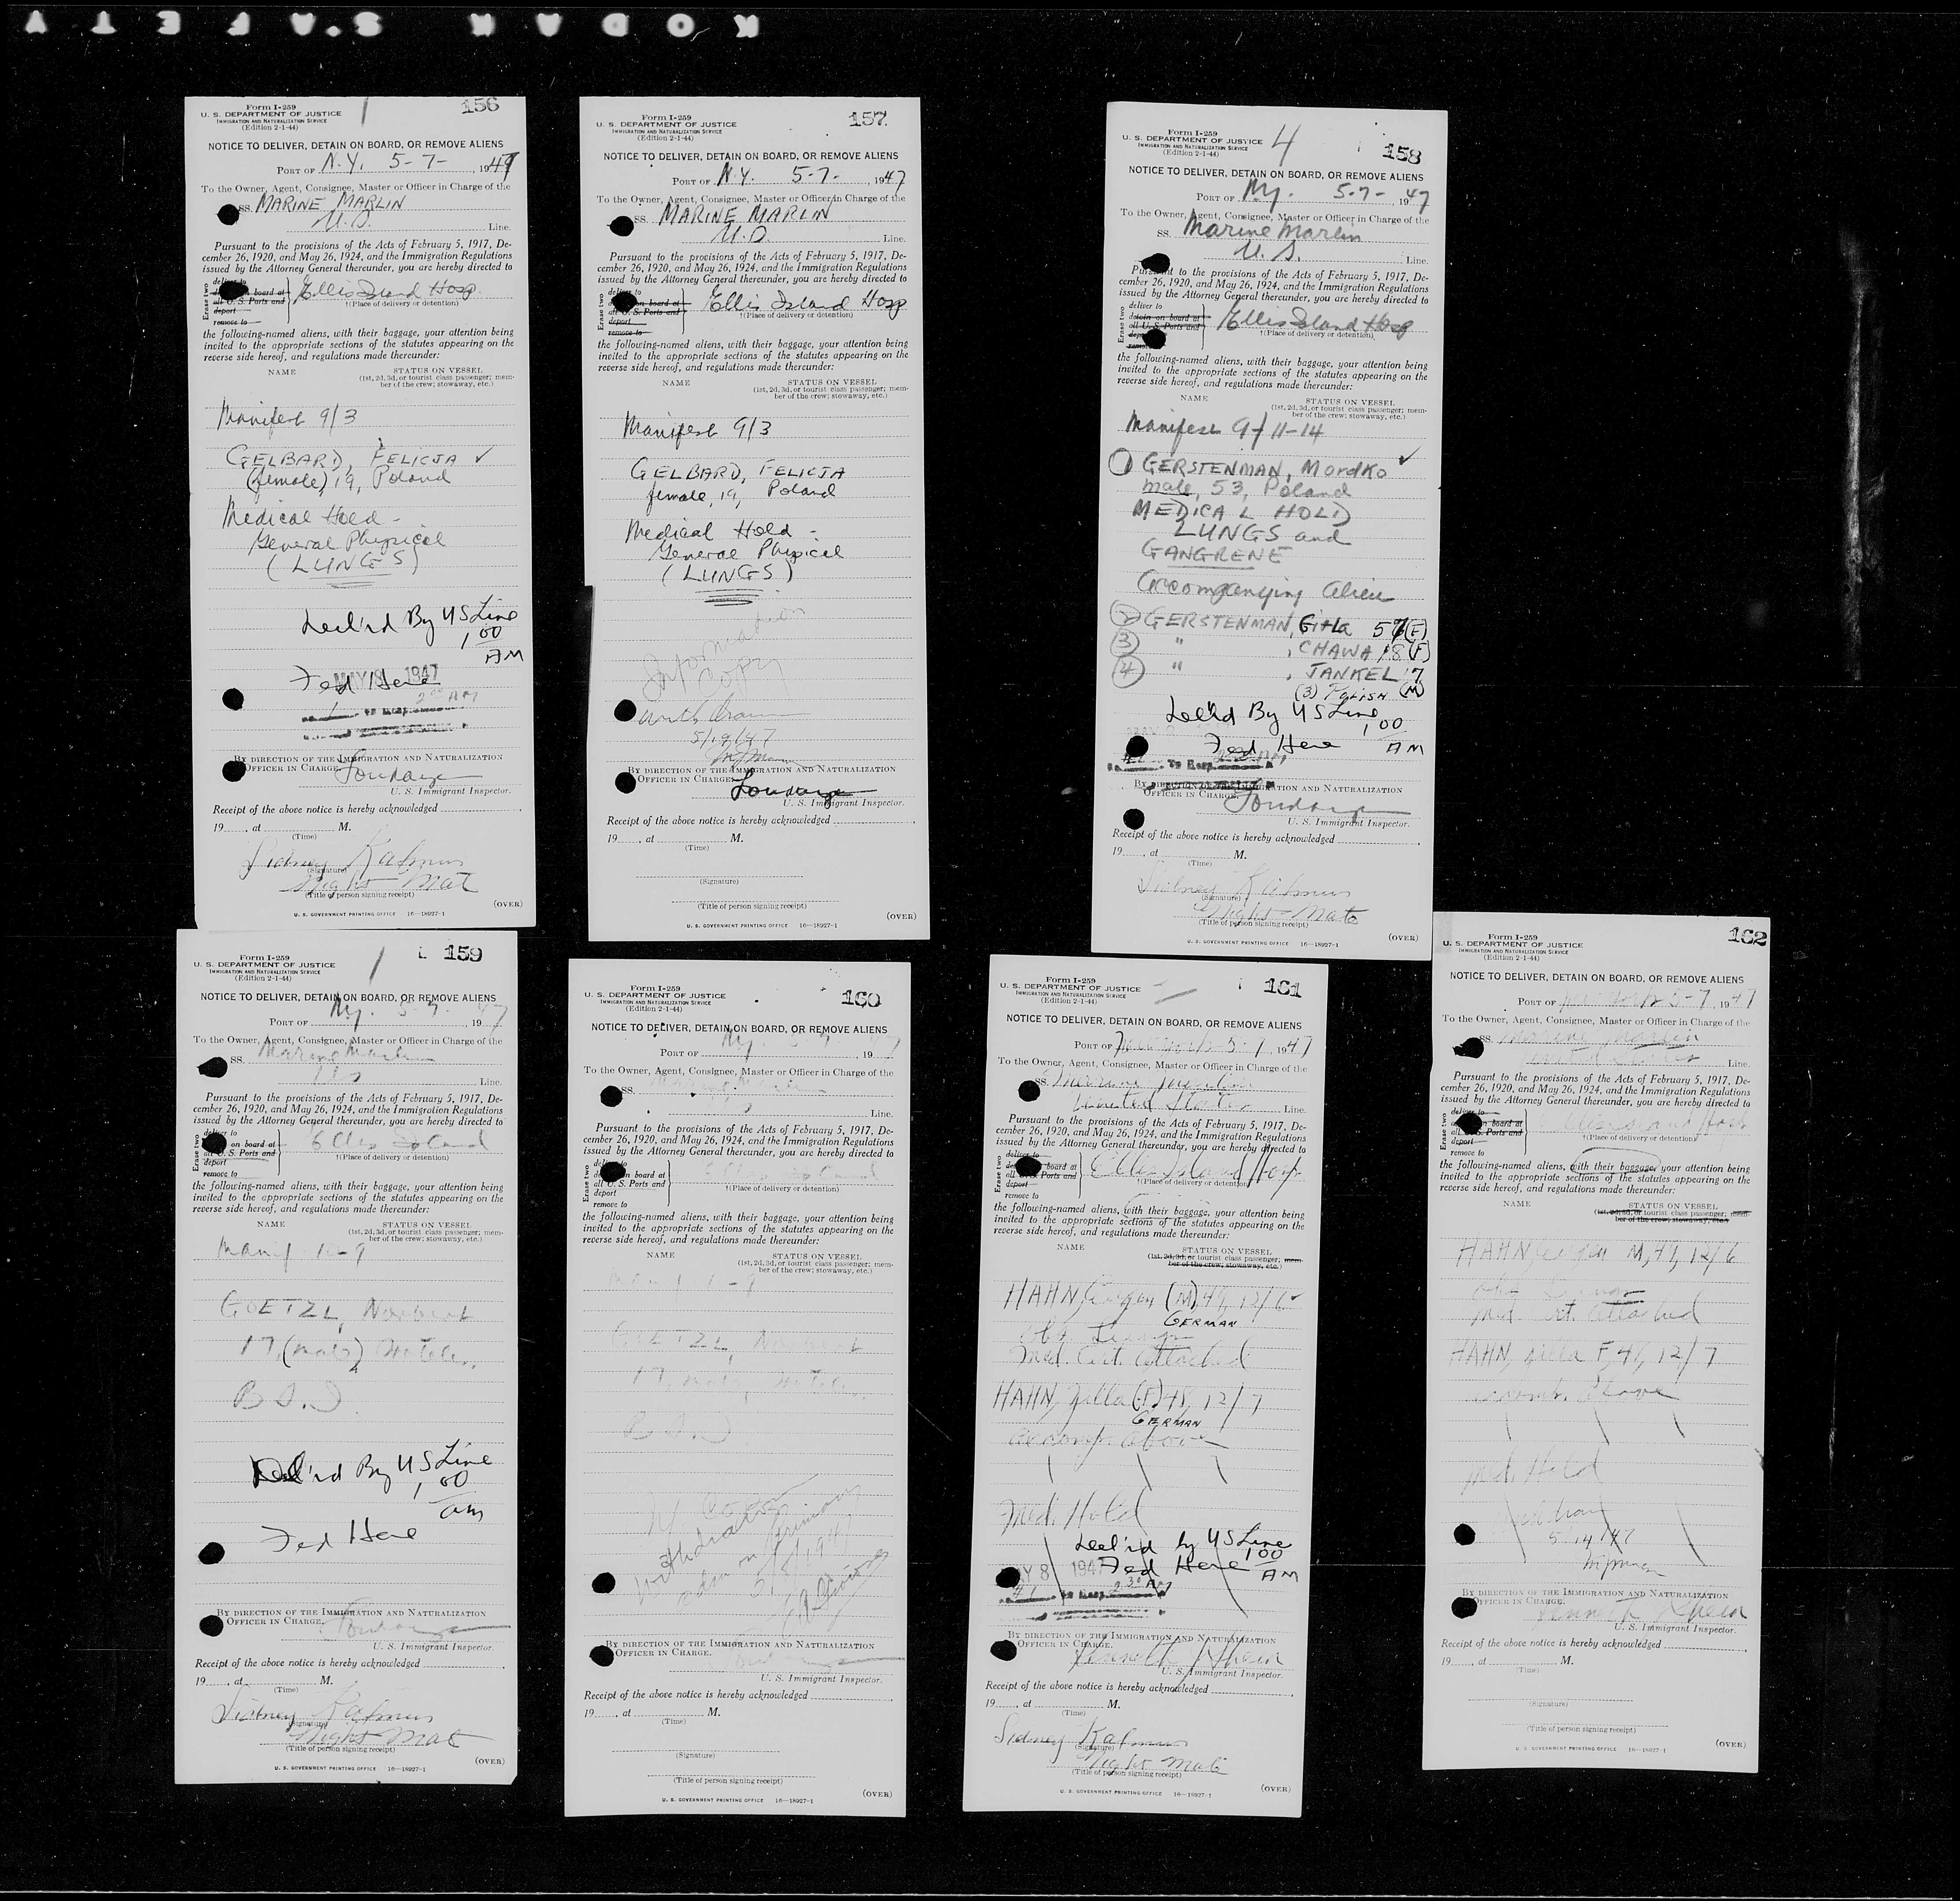 KODAK SAFETY
156
Form I-259
U. S. DEPARTMENT OF JUSTICE
IMMIGRATION AND NATURALIZATION SERVICE
(Edition 2-1-44)
NOTICE TO DELIVER, DETAIN ON BOARD, OR REMOVE ALIENS
PORT OF N.Y. 5-7-, 1947
To the Owner, Agent, Consignee, Master or Officer in Charge of the
SS. MARINE MARLIN
U.S. Line.
Pursuant to the provisions of the Acts of February 5, 1917, De-
cember 26, 1920, and May 26, 1924, and the Immigration Regulations
issued by the Attorney General thereunder, you are hereby directed to
Erase two
deliver to
on board at
all U. S. Ports and
deport
remove to
Ellis Island Hosp
†(Place of delivery or detention)
the following-named aliens, with their baggage, your attention being
invited to the appropriate sections of the statutes appearing on the
reverse side hereof, and regulations made thereunder:
NAME STATUS ON VESSEL
(1st, 2d, 3d, or tourist class passenger; mem-
ber of the crew; stowaway, etc.)
Manifest 9/3
GELBARD, FELICJA ✓
(female), 19, Poland
Medical Hold -
General Physical
(LUNGS)
Del'd By US Line
1 00
AM
MAY 8 1947
Fed Here
2 00 AM
To Hosp.
BY DIRECTION OF THE IMMIGRATION AND NATURALIZATION
OFFICER IN CHARGE.
U. S. Immigrant Inspector.
Receipt of the above notice is hereby acknowledged
19......, at .............. M.
(Time)
Sidney Kalmus
(Signature)
Night Mat
(Title of person signing receipt)
(OVER)
U. S. GOVERNMENT PRINTING OFFICE 16—18927-1
157
Form I-259
U. S. DEPARTMENT OF JUSTICE
IMMIGRATION AND NATURALIZATION SERVICE
(Edition 2-1-44)
NOTICE TO DELIVER, DETAIN ON BOARD, OR REMOVE ALIENS
PORT OF N.Y. 5-7-, 1947
To the Owner, Agent, Consignee, Master or Officer in Charge of the
SS. MARINE MARLIN
U.S. Line.
Pursuant to the provisions of the Acts of February 5, 1917, De-
cember 26, 1920, and May 26, 1924, and the Immigration Regulations
issued by the Attorney General thereunder, you are hereby directed to
Erase two
deliver to
on board at
all U. S. Ports and
deport
remove to
Ellis Island Hosp
†(Place of delivery or detention)
the following-named aliens, with their baggage, your attention being
invited to the appropriate sections of the statutes appearing on the
reverse side hereof, and regulations made thereunder:
NAME STATUS ON VESSEL
(1st, 2d, 3d, or tourist class passenger; mem-
ber of the crew; stowaway, etc.)
Manifest 9/3
GELBARD, FELICJA
female, 19, Poland
Medical Hold -
General Physical
(LUNGS)
Information
Copy
withdrawn
5/19/47
BY DIRECTION OF THE IMMIGRATION AND NATURALIZATION
OFFICER IN CHARGE.
U. S. Immigrant Inspector.
Receipt of the above notice is hereby acknowledged
19......, at .............. M.
(Time)
(Signature)
(Title of person signing receipt)
(OVER)
U. S. GOVERNMENT PRINTING OFFICE 16—18927-1
4
158
Form I-259
U. S. DEPARTMENT OF JUSTICE
IMMIGRATION AND NATURALIZATION SERVICE
(Edition 2-1-44)
NOTICE TO DELIVER, DETAIN ON BOARD, OR REMOVE ALIENS
PORT OF Ny. 5-7-, 1947
To the Owner, Agent, Consignee, Master or Officer in Charge of the
SS. Marine Marlin
U.S. Line.
Pursuant to the provisions of the Acts of February 5, 1917, De-
cember 26, 1920, and May 26, 1924, and the Immigration Regulations
issued by the Attorney General thereunder, you are hereby directed to
Erase two
deliver to
detain on board at
all U. S. Ports and
Ellis Island Hosp
†(Place of delivery or detention)
the following-named aliens, with their baggage, your attention being
invited to the appropriate sections of the statutes appearing on the
reverse side hereof, and regulations made thereunder:
NAME STATUS ON VESSEL
(1st, 2d, 3d, or tourist class passenger; mem-
ber of the crew; stowaway, etc.)
Manifest 9/ 11-14
① GERSTENMAN, Mordko ✓
male, 53, Poland
MEDICAL HOLD
LUNGS and
GANGRENE
Accompanying alien
② GERSTENMAN, Gitla 57 (F)
③ " , CHAWA 18 (F)
④ " , JANKEL 17 (M)
(3) POLISH
Del'd By US Line
1 00
AM
Fed Here
To Hosp.
BY DIRECTION OF THE IMMIGRATION AND NATURALIZATION
OFFICER IN CHARGE.
U. S. Immigrant Inspector.
Receipt of the above notice is hereby acknowledged
19......, at .............. M.
(Time)
Sidney Kalmus
(Signature)
Night Mate
(Title of person signing receipt)
(OVER)
U. S. GOVERNMENT PRINTING OFFICE 16—18927-1
159
Form I-259
U. S. DEPARTMENT OF JUSTICE
IMMIGRATION AND NATURALIZATION SERVICE
(Edition 2-1-44)
NOTICE TO DELIVER, DETAIN ON BOARD, OR REMOVE ALIENS
PORT OF Ny. 5-7-, 1947
To the Owner, Agent, Consignee, Master or Officer in Charge of the
SS. Marine Marlin
US Line.
Pursuant to the provisions of the Acts of February 5, 1917, De-
cember 26, 1920, and May 26, 1924, and the Immigration Regulations
issued by the Attorney General thereunder, you are hereby directed to
Erase two
deliver to
on board at
all U. S. Ports and
deport
remove to
Ellis Island
†(Place of delivery or detention)
the following-named aliens, with their baggage, your attention being
invited to the appropriate sections of the statutes appearing on the
reverse side hereof, and regulations made thereunder:
NAME STATUS ON VESSEL
(1st, 2d, 3d, or tourist class passenger; mem-
ber of the crew; stowaway, etc.)
Manif
GOETZL, Norbert
17, (male)
Del'd By US Line
1 00
am
Fed Here
BY DIRECTION OF THE IMMIGRATION AND NATURALIZATION
OFFICER IN CHARGE.
U. S. Immigrant Inspector.
Receipt of the above notice is hereby acknowledged
19......, at .............. M.
(Time)
Sidney Kalmus
(Signature)
Night Mat
(Title of person signing receipt)
(OVER)
U. S. GOVERNMENT PRINTING OFFICE 16—18927-1
160
Form I-259
U. S. DEPARTMENT OF JUSTICE
IMMIGRATION AND NATURALIZATION SERVICE
(Edition 2-1-44)
NOTICE TO DELIVER, DETAIN ON BOARD, OR REMOVE ALIENS
PORT OF Ny. 5-7, 1947
To the Owner, Agent, Consignee, Master or Officer in Charge of the
SS. Marine
Line.
Pursuant to the provisions of the Acts of February 5, 1917, De-
cember 26, 1920, and May 26, 1924, and the Immigration Regulations
issued by the Attorney General thereunder, you are hereby directed to
Erase two
deliver to
on board at
all U. S. Ports and
deport
remove to
Ellis Island
†(Place of delivery or detention)
the following-named aliens, with their baggage, your attention being
invited to the appropriate sections of the statutes appearing on the
reverse side hereof, and regulations made thereunder:
NAME STATUS ON VESSEL
(1st, 2d, 3d, or tourist class passenger; mem-
ber of the crew; stowaway, etc.)
GOETZL, Norbert
17, male,
withdrawn
BY DIRECTION OF THE IMMIGRATION AND NATURALIZATION
OFFICER IN CHARGE.
U. S. Immigrant Inspector.
Receipt of the above notice is hereby acknowledged
19......, at .............. M.
(Time)
(Signature)
(Title of person signing receipt)
(OVER)
U. S. GOVERNMENT PRINTING OFFICE 16—18927-1
161
Form I-259
U. S. DEPARTMENT OF JUSTICE
IMMIGRATION AND NATURALIZATION SERVICE
(Edition 2-1-44)
NOTICE TO DELIVER, DETAIN ON BOARD, OR REMOVE ALIENS
PORT OF New York 5-7, 1947
To the Owner, Agent, Consignee, Master or Officer in Charge of the
SS. Marine Marlin
United States Line.
Pursuant to the provisions of the Acts of February 5, 1917, De-
cember 26, 1920, and May 26, 1924, and the Immigration Regulations
issued by the Attorney General thereunder, you are hereby directed to
Erase two
deliver to
board at
all U. S. Ports and
deport
remove to
Ellis Island Hosp
†(Place of delivery or detention)
the following-named aliens, with their baggage, your attention being
invited to the appropriate sections of the statutes appearing on the
reverse side hereof, and regulations made thereunder:
NAME STATUS ON VESSEL
(1st, 2d, 3d, or tourist class passenger; mem-
ber of the crew; stowaway, etc.)
HAHN, Eugen (M), 49, 12/6 ✓
GERMAN
Lungs
Med. Cert. attached
HAHN, Zilla (F) 48, 12/7
GERMAN
accomp. above
Med. Hold
Del'd by US Line
1 00
AM
MAY 8 1947
Fed Here
2 30 AM
To Hosp.
BY DIRECTION OF THE IMMIGRATION AND NATURALIZATION
OFFICER IN CHARGE.
Kenneth J Shein
U. S. Immigrant Inspector.
Receipt of the above notice is hereby acknowledged
19......, at .............. M.
(Time)
Sidney Kalmus
(Signature)
Night Mate
(Title of person signing receipt)
(OVER)
U. S. GOVERNMENT PRINTING OFFICE 16—18927-1
162
Form I-259
U. S. DEPARTMENT OF JUSTICE
IMMIGRATION AND NATURALIZATION SERVICE
(Edition 2-1-44)
NOTICE TO DELIVER, DETAIN ON BOARD, OR REMOVE ALIENS
PORT OF New York 5-7, 1947
To the Owner, Agent, Consignee, Master or Officer in Charge of the
SS. Marine Marlin
United States Line.
Pursuant to the provisions of the Acts of February 5, 1917, De-
cember 26, 1920, and May 26, 1924, and the Immigration Regulations
issued by the Attorney General thereunder, you are hereby directed to
Erase two
deliver to
on board at
all U. S. Ports and
deport
remove to
Ellis Island Hosp
†(Place of delivery or detention)
the following-named aliens, with their baggage, your attention being
invited to the appropriate sections of the statutes appearing on the
reverse side hereof, and regulations made thereunder:
NAME STATUS ON VESSEL
(1st, 2d, 3d, or tourist class passenger; mem-
ber of the crew; stowaway, etc.)
HAHN, Eugen M, 49, 12/6
Lungs
Med. Cert. attached
HAHN, Zilla F, 48, 12/7
accomp. above
Med. Hold
5/14/47
BY DIRECTION OF THE IMMIGRATION AND NATURALIZATION
OFFICER IN CHARGE.
Kenneth J Shein
U. S. Immigrant Inspector.
Receipt of the above notice is hereby acknowledged
19......, at .............. M.
(Time)
(Signature)
(Title of person signing receipt)
(OVER)
U. S. GOVERNMENT PRINTING OFFICE 16—18927-1